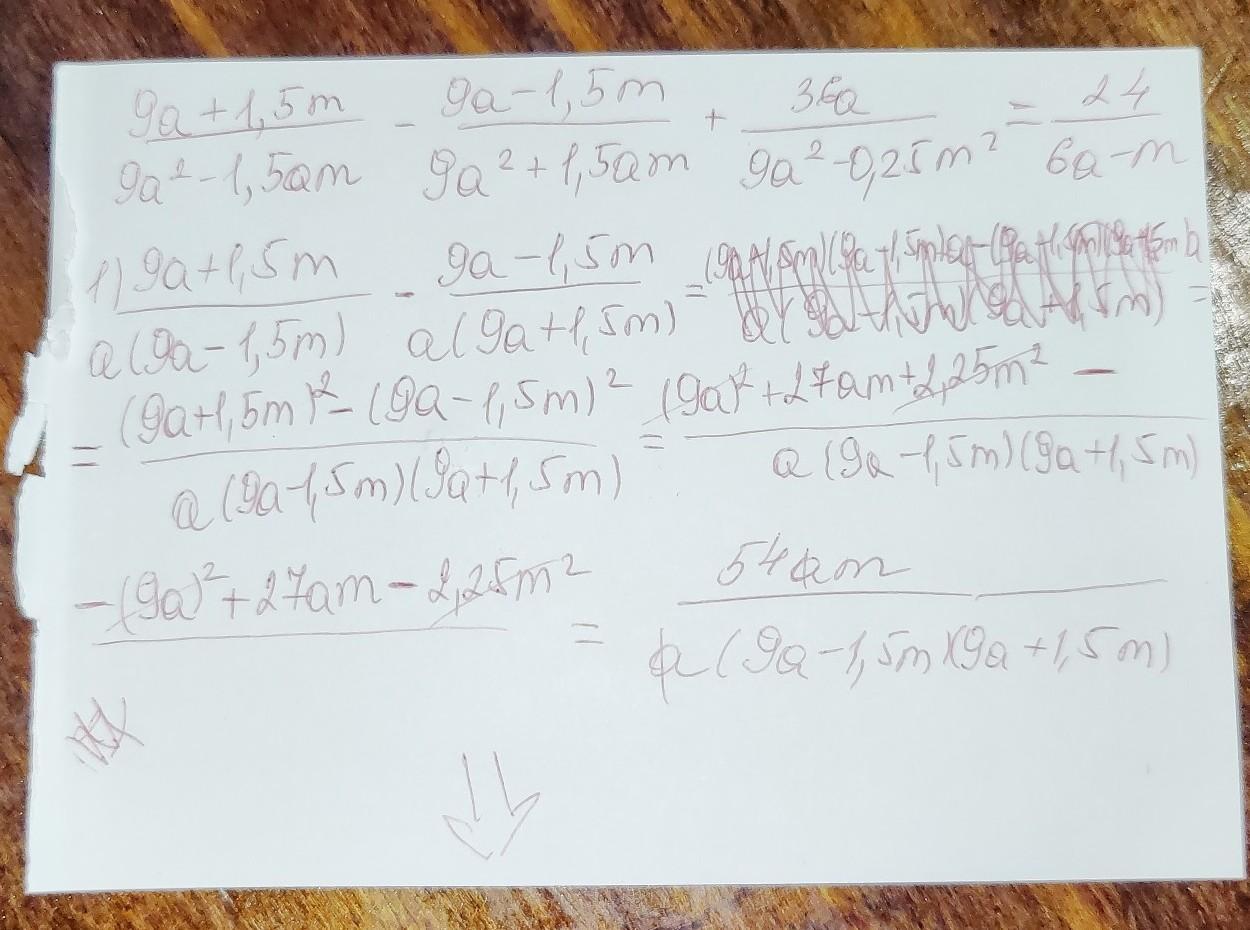 (9a+1,5m)/(9a²-1,5am) - (9a-1,5m)/(9a²+1,5am) + 36a/(9a²-0,25m²) = 24/(6a-m)
1) (9a+1,5m)/(a(9a-1,5m)) - (9a-1,5m)/(a(9a+1,5m)) = =
= ((9a+1,5m)²-(9a-1,5m)²)/(a(9a-1,5m)(9a+1,5m)) = ((9a)²+27am+2,25m² -)/(a(9a-1,5m)(9a+1,5m))
-(9a)²+27am-2,25m² = 54am/(a(9a-1,5m)(9a+1,5m))